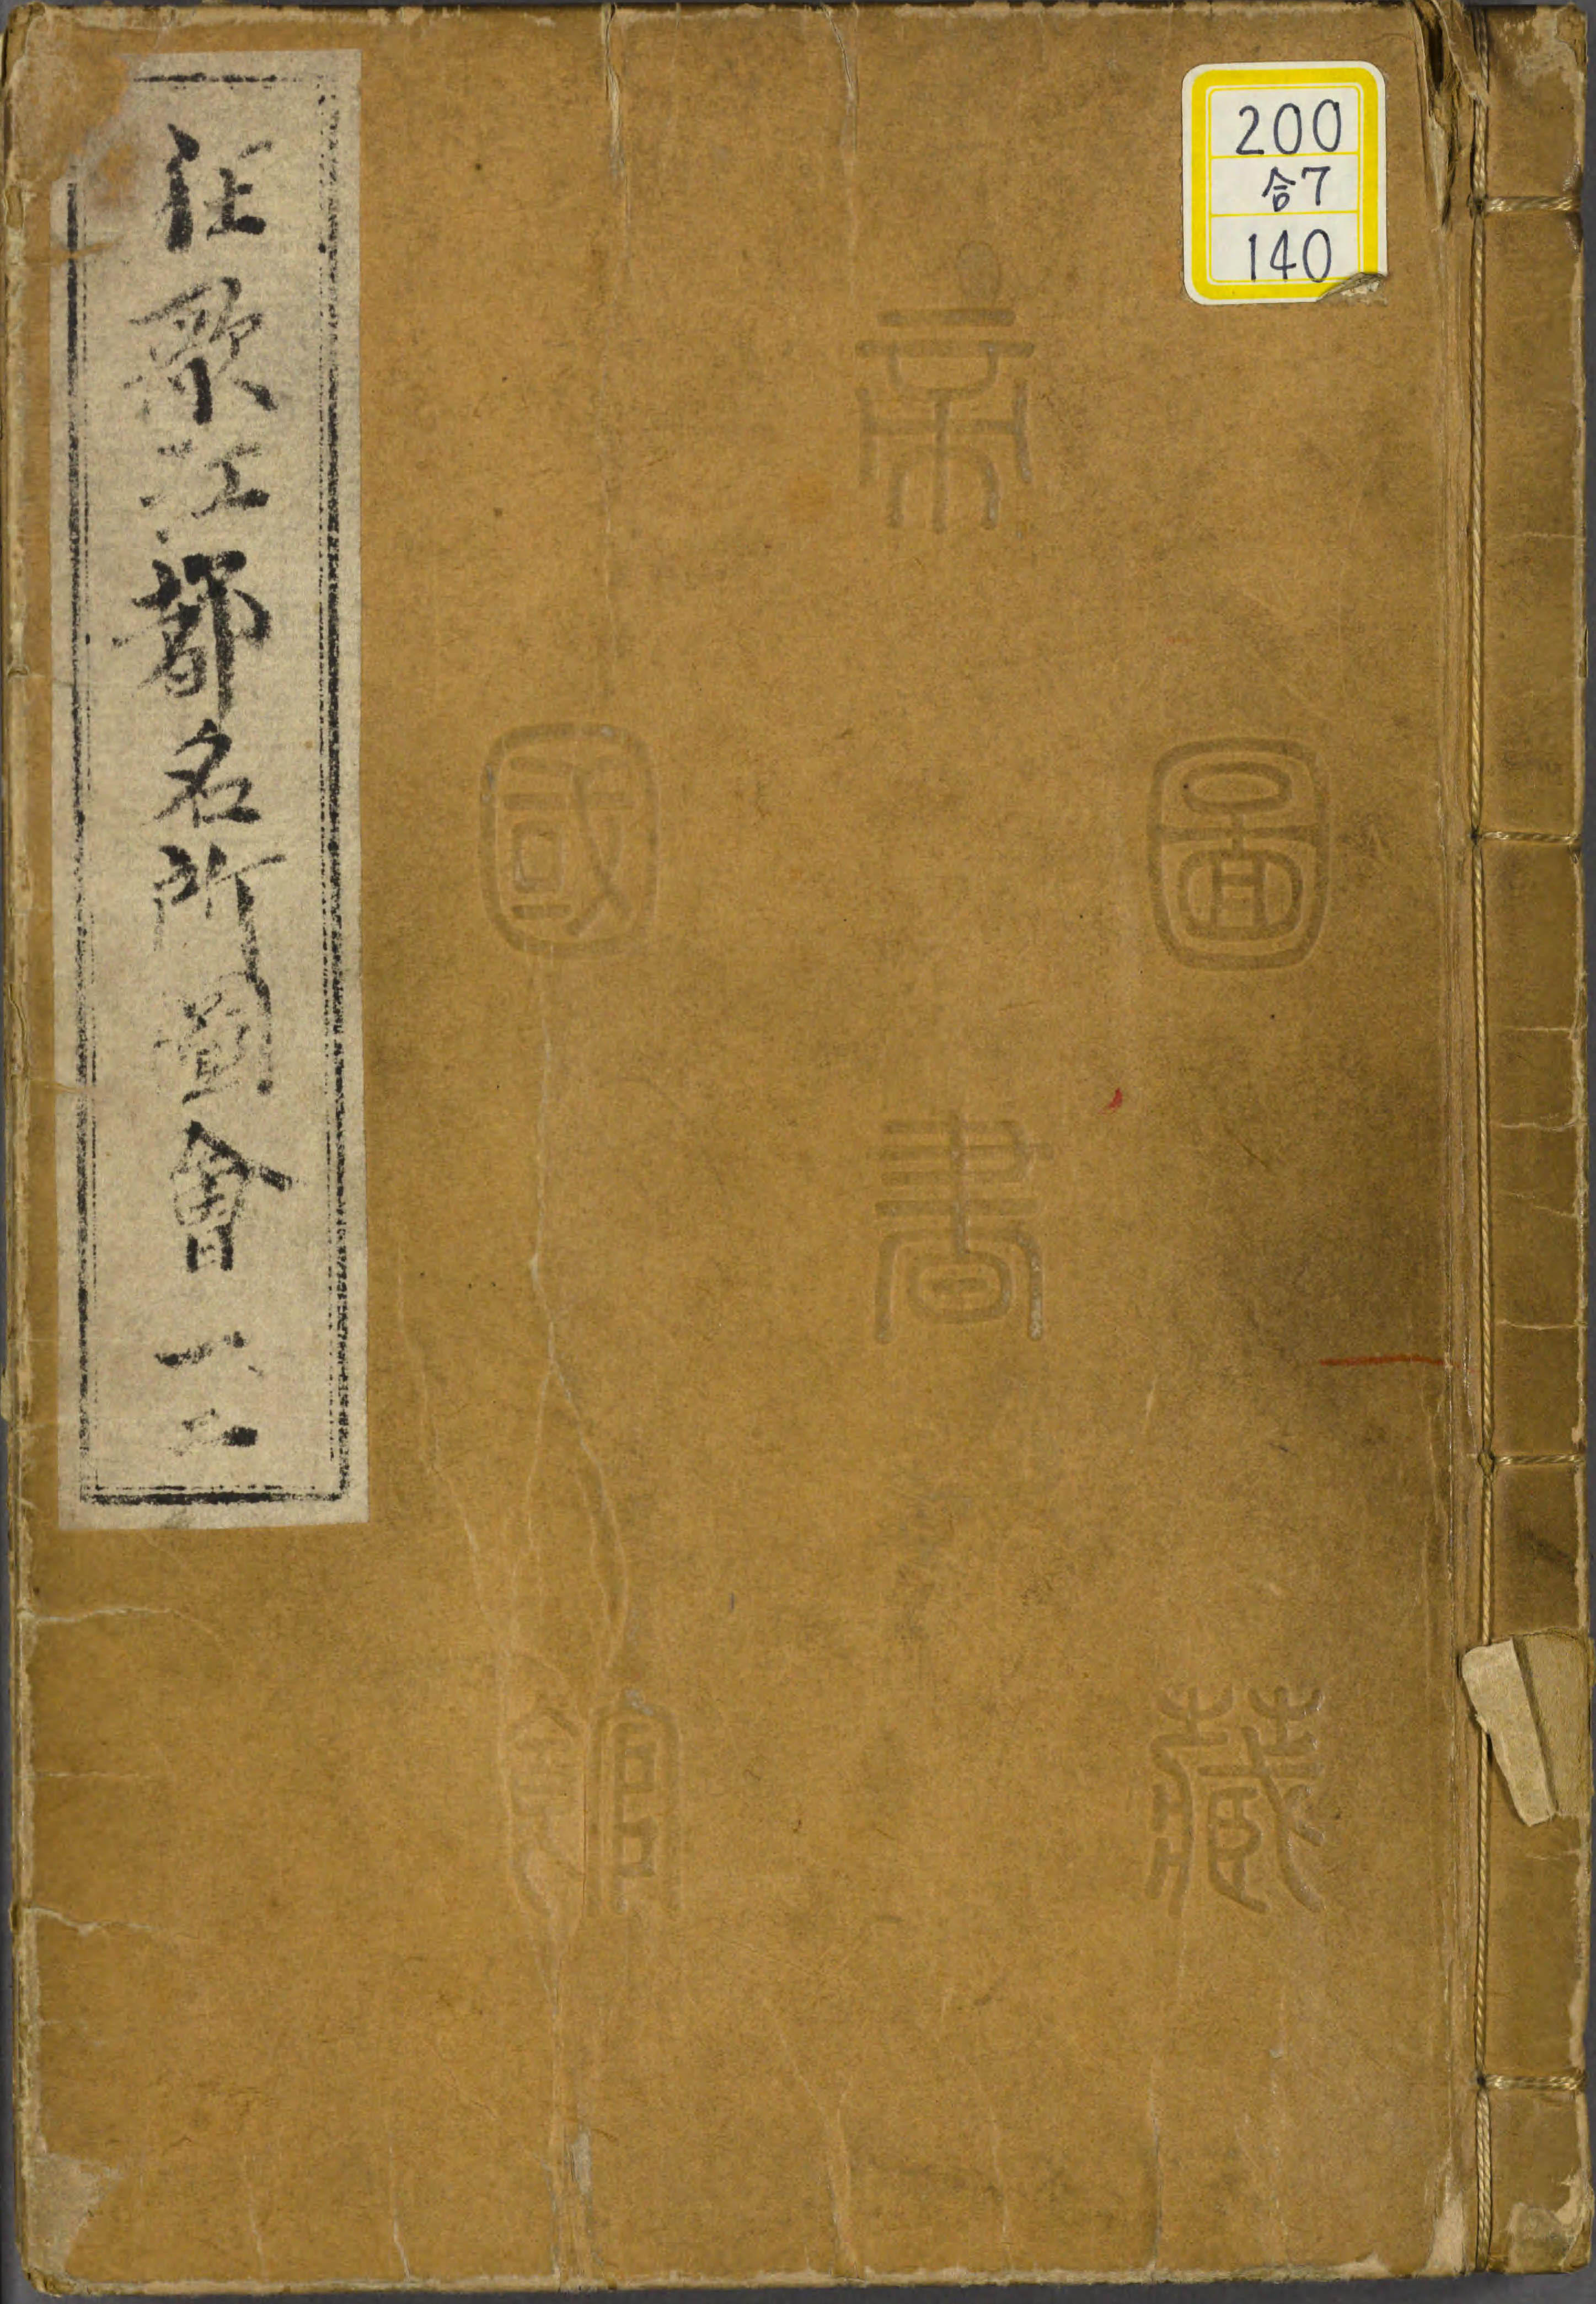 200
合7
140
狂歌江都名所圖會 一、二
帝
圖
國
書
藏
館